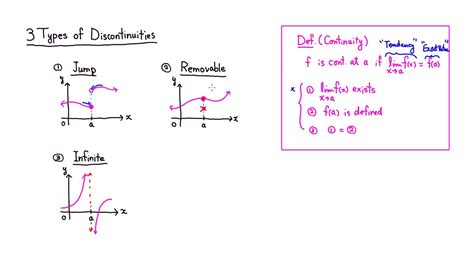 3 Types of Discontinuities
① Jump
y
0 a x
② Removable
y
0 a x
③ Infinite
y
0 a x
Def. (Continuity) "Tendency" "Exact Value"
f is cont. at a if lim f(x) = f(a)
x→a
x ① lim f(x) exists
x→a
② f(a) is defined
③ ① = ②